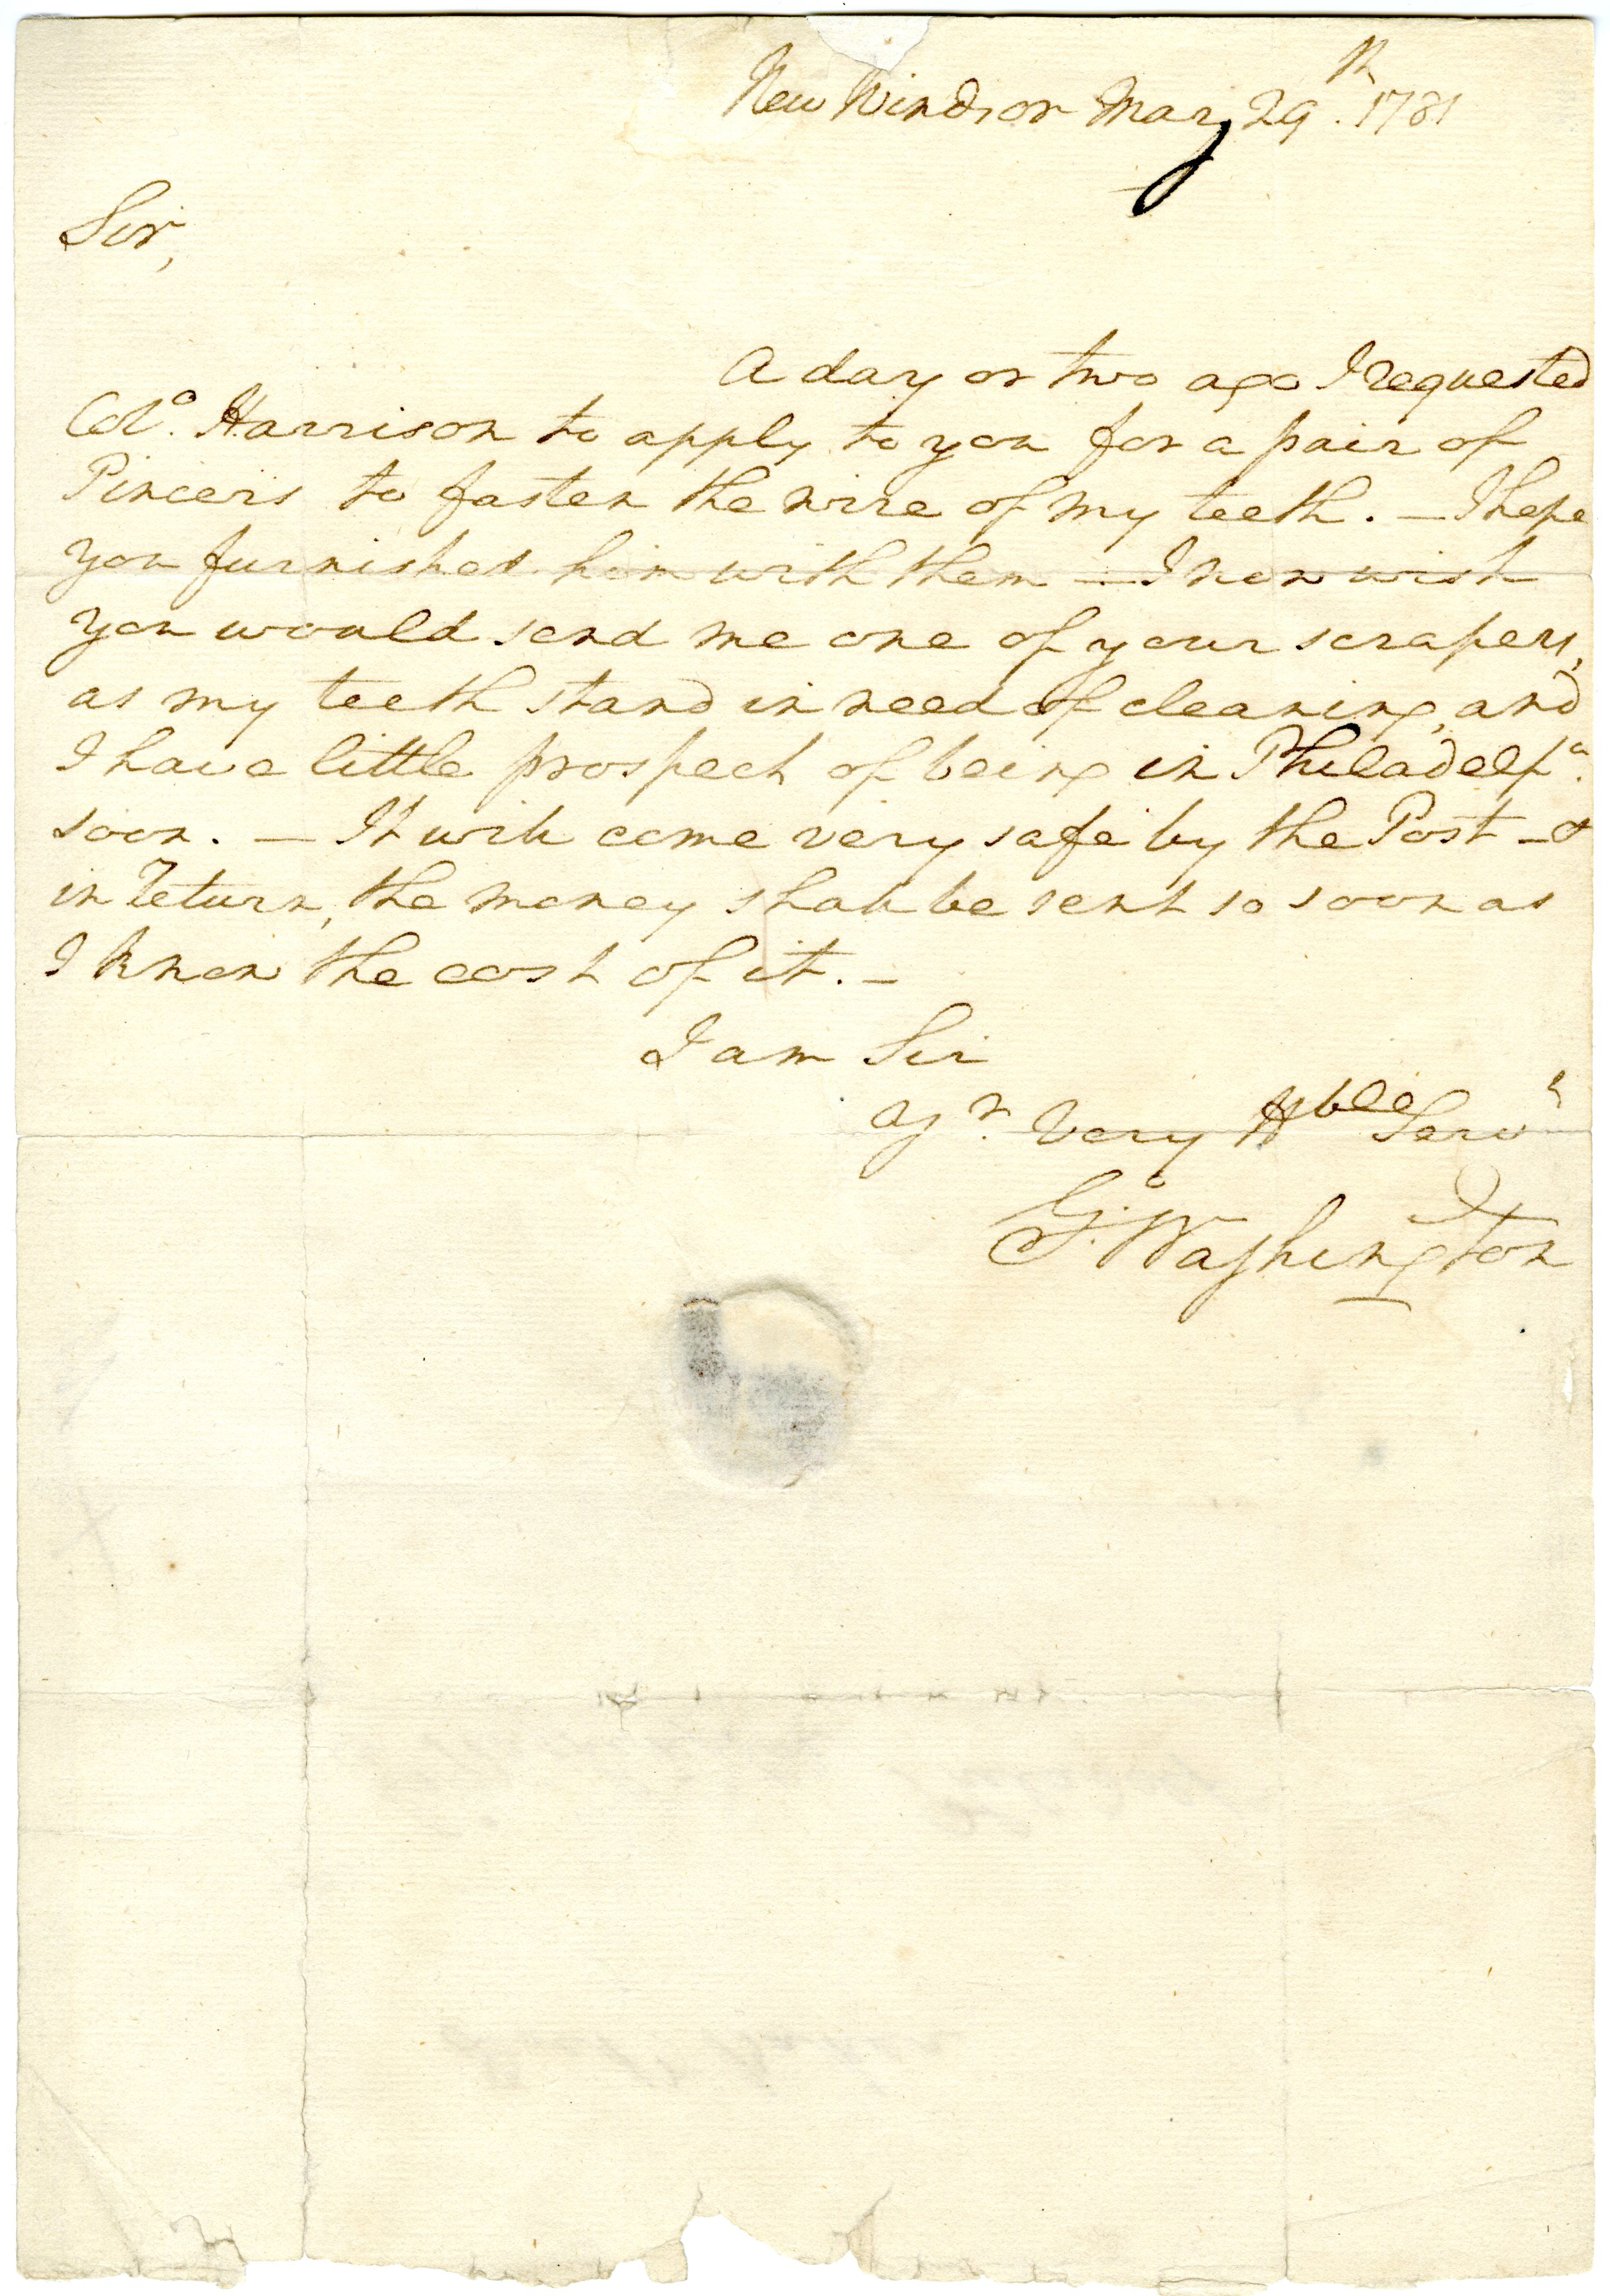 New Windsor May 29th. 1781
Sir,
A day or two ago I requested
Colo. Harrison to apply to you for a pair of
Pincers to fasten the wire of my teeth. — I hope
you furnished him with them — I now wish
you would send me one of your scrapers,
as my teeth stand in need of cleaning, and
I have little prospect of being in Philadelpa.
soon. — It will come very safe by the Post — &
in return, the money shall be sent so soon as
I know the cost of it. —
I am Sir
Yr. Very Hble Servt
Go: Washington